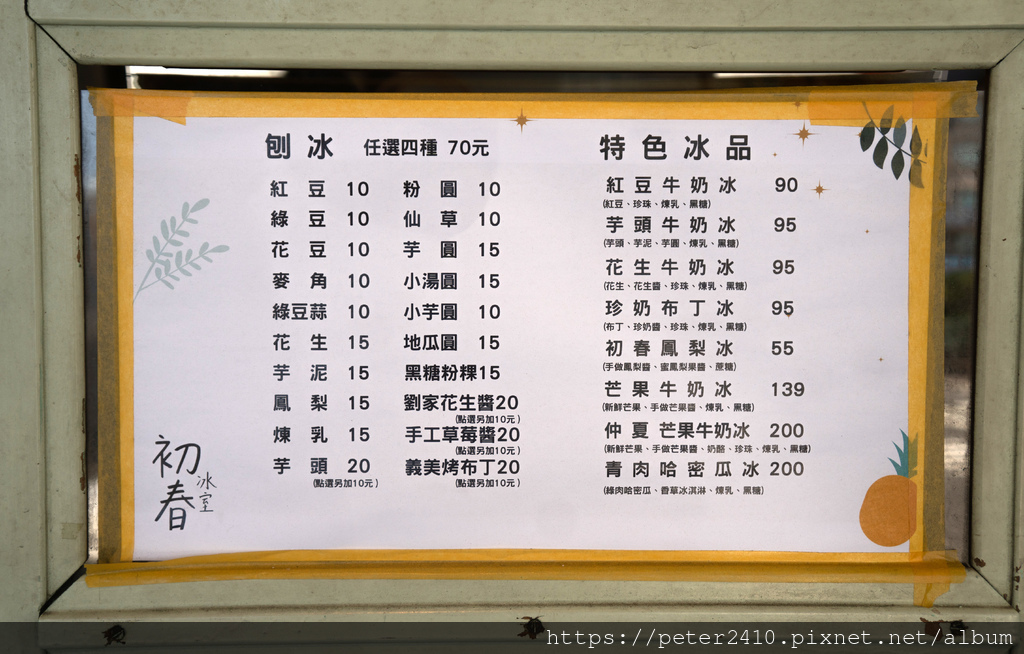 刨冰 任選四種 70元
紅豆 10 粉圓 10
綠豆 10 仙草 10
花豆 10 芋圓 15
麥角 10 小湯圓 15
綠豆蒜 10 小芋圓 10
花生 15 地瓜圓 15
芋泥 15 黑糖粉粿15
鳳梨 15 劉家花生醬20
(點選另加10元)
煉乳 15 手工草莓醬20
(點選另加10元)
芋頭 20 義美烤布丁20
(點選另加10元) (點選另加10元)
特色冰品
紅豆牛奶冰 90
(紅豆、珍珠、煉乳、黑糖)
芋頭牛奶冰 95
(芋頭、芋泥、芋圓、煉乳、黑糖)
花生牛奶冰 95
(花生、花生醬、珍珠、煉乳、黑糖)
珍奶布丁冰 95
(布丁、珍奶醬、珍珠、煉乳、黑糖)
初春鳳梨冰 55
(手做鳳梨醬、蜜鳳梨果醬、蔗糖)
芒果牛奶冰 139
(新鮮芒果、手做芒果醬、煉乳、黑糖)
仲夏芒果牛奶冰 200
(新鮮芒果、手做芒果醬、奶酪、珍珠、煉乳、黑糖)
青肉哈密瓜冰 200
(綠肉哈密瓜、香草冰淇淋、煉乳、黑糖)
初春
冰室
https://peter2410.pixnet.net/album